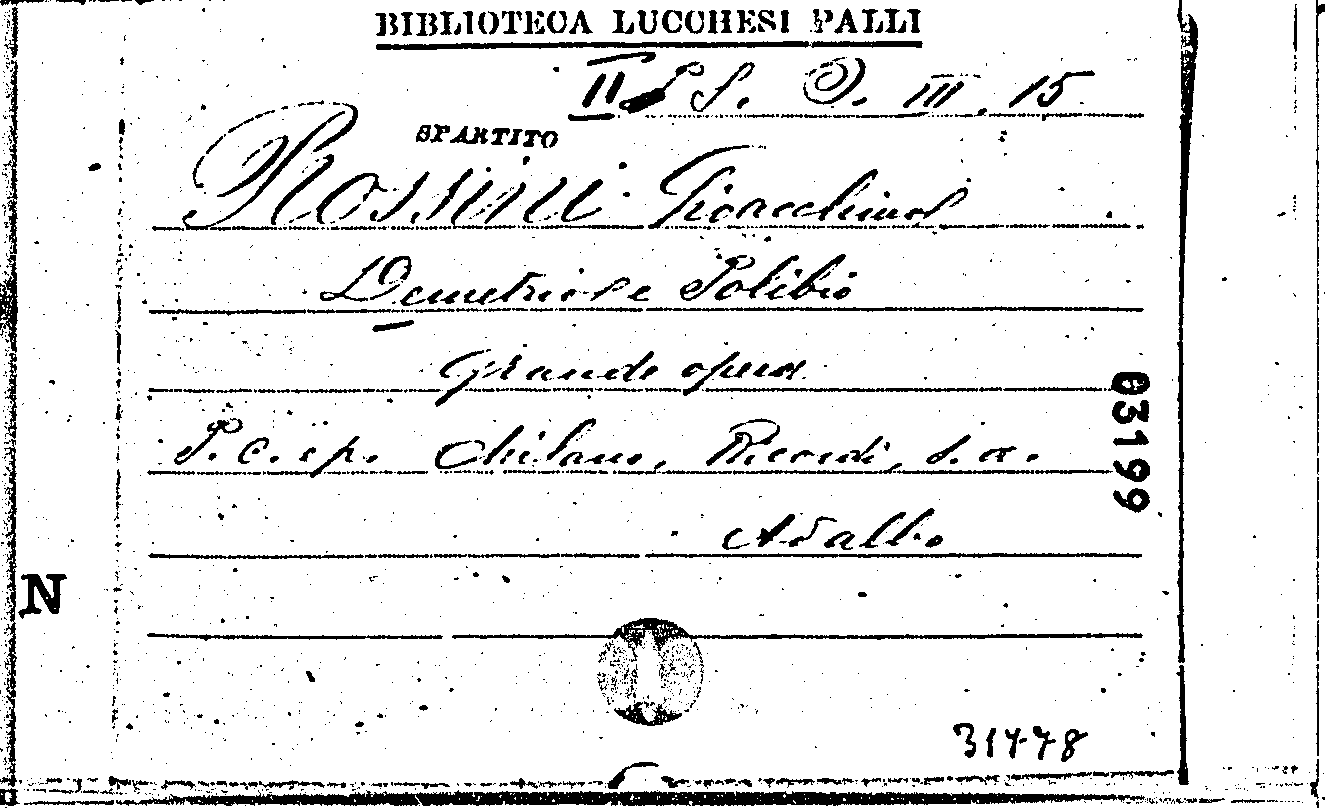 BIBLIOTECA LUCCHESI PALLI
II S. O. III. 15
SPARTITO
Rossini Gioacchino
Demetrio e Polibio
Grande opera
P. c. e p. Milano, Ricordi, s. a.
03199
N
31448